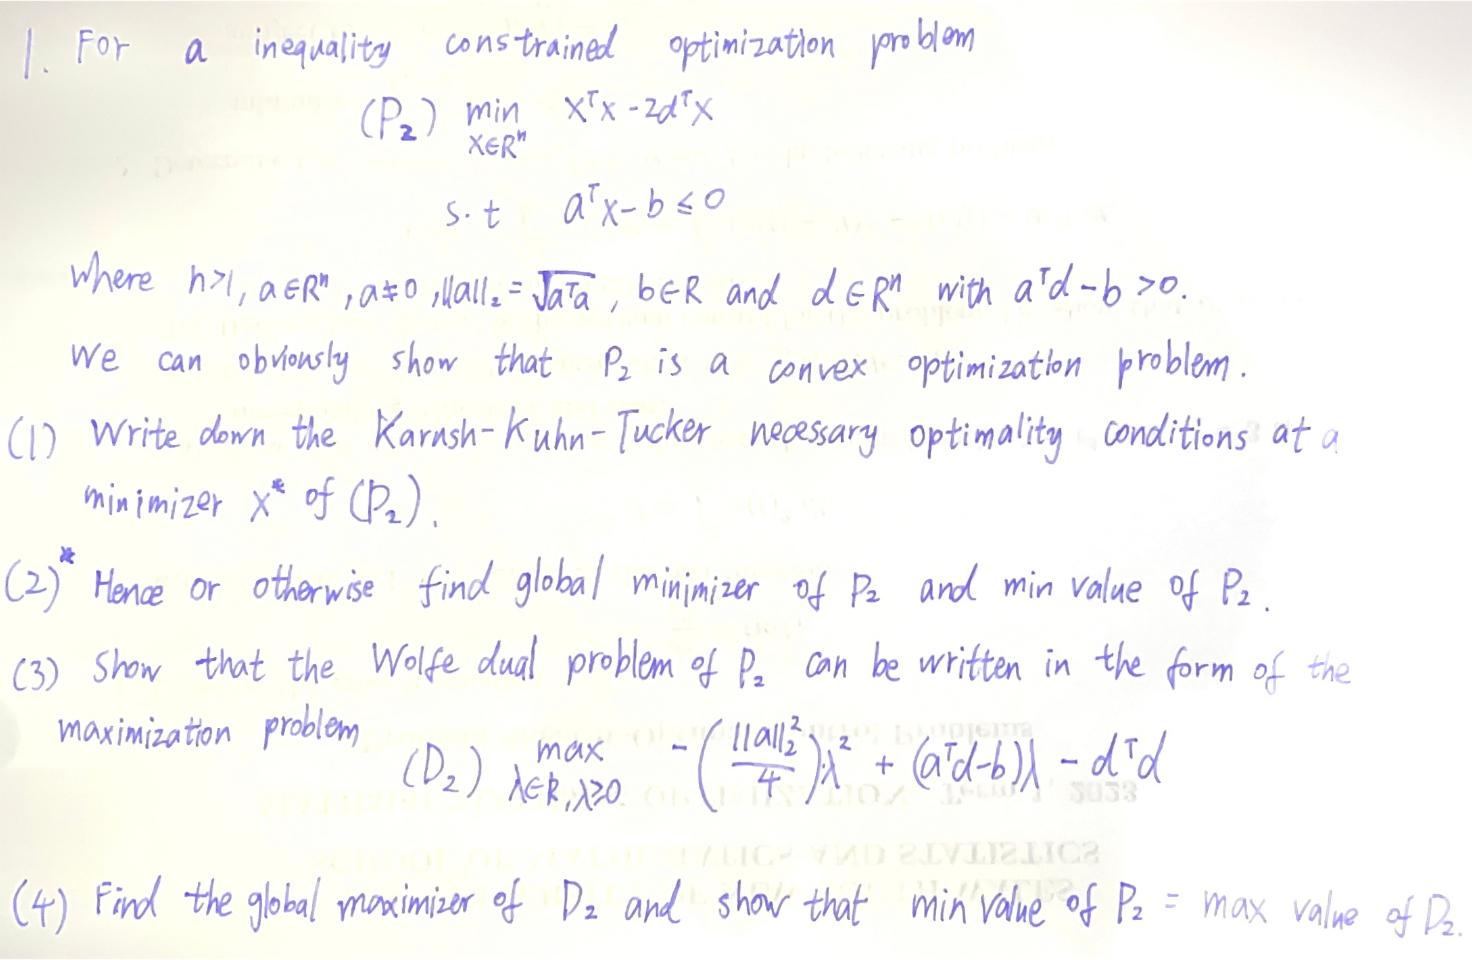 1. For a inequality constrained optimization problem
(P₂) min xᵀx - 2dᵀx
x∈Rⁿ
s.t aᵀx - b ≤ 0
where n>1, a∈Rⁿ, a≠0, ||a||₂ = √aᵀa, b∈R and d∈Rⁿ with aᵀd - b > 0.
We can obviously show that P₂ is a convex optimization problem.
(1) Write down the Karush-Kuhn-Tucker necessary optimality conditions at a
minimizer x* of (P₂).
(2)* Hence or otherwise find global minimizer of P₂ and min value of P₂.
(3) Show that the Wolfe dual problem of P₂ can be written in the form of the
maximization problem
(D₂) max -(||a||₂²/4)λ² + (aᵀd-b)λ - dᵀd
λ∈R, λ≥0
(4) Find the global maximizer of D₂ and show that min value of P₂ = max value of D₂.